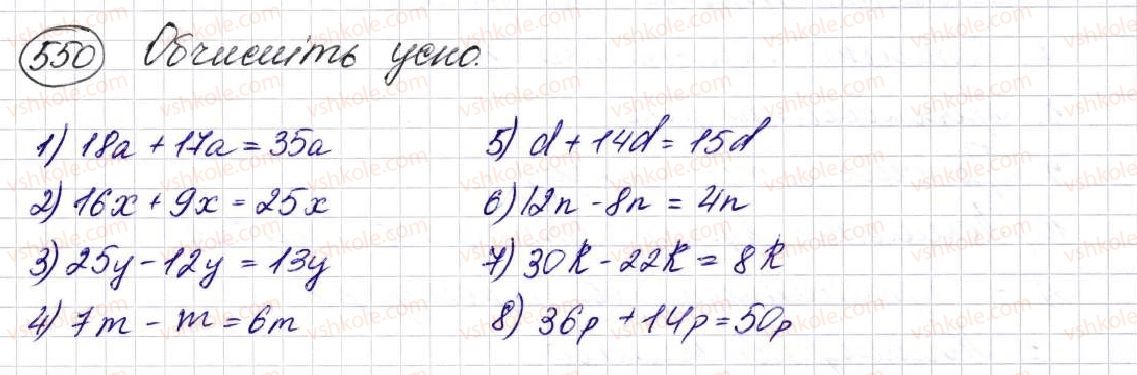 550 Обчисліть усно.
1) 18a + 17a = 35a
2) 16x + 9x = 25x
3) 25y - 12y = 13y
4) 7m - m = 6m
5) d + 14d = 15d
6) 12n - 8n = 4n
7) 30k - 22k = 8k
8) 36p + 14p = 50p